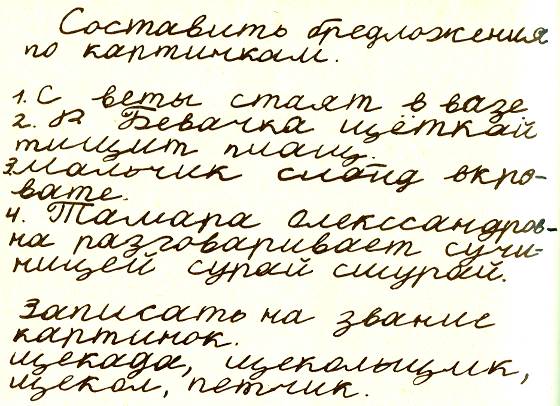 Составить бредложения
по картинкам.
1. С веты стаят в вазе
2. В Бевачка щёткай
тищит плащ.
3. мальчик слаид вкро-
вате.
4. Тамара олекссандров-
на разговаривает сучи-
ницей сурай сшурай.
Записать на звание
картинок.
щекада, щекольщик,
щекол, петчик.